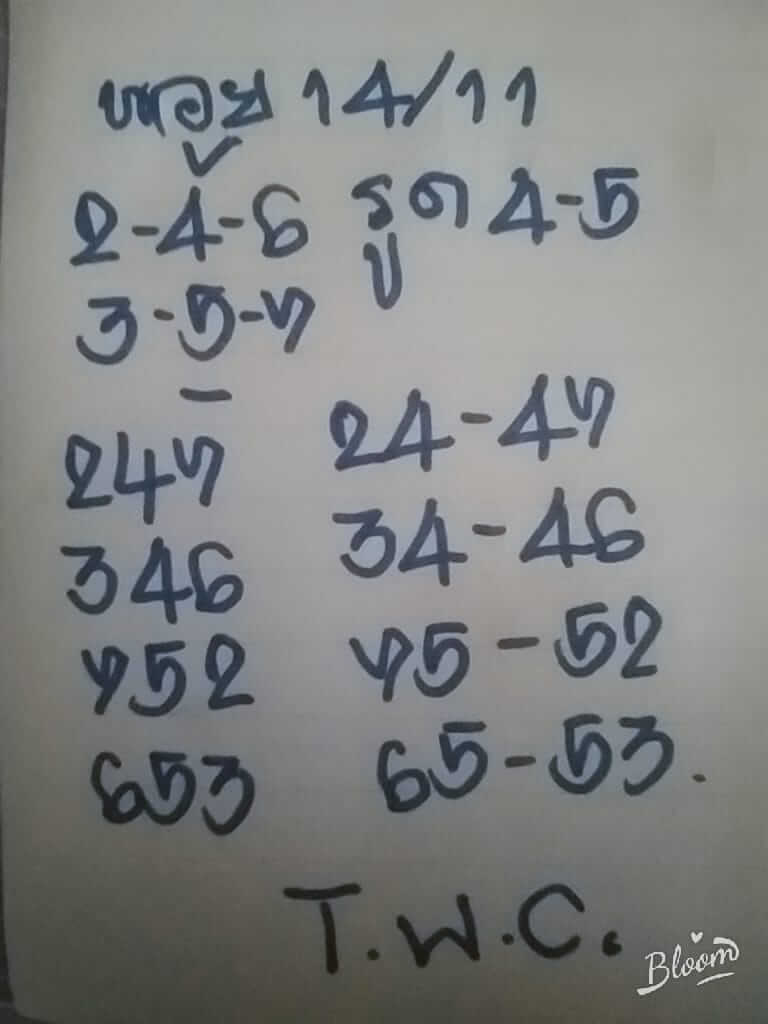 หอย 14/11
2-4-6 รูด 4-5
3-5-7
247 24-47
346 34-46
752 75-52
653 65-53.
T.W.C.
Bloom